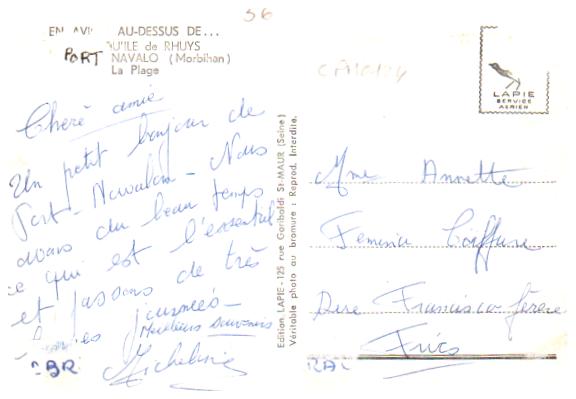 56
EN AVION AU-DESSUS DE...
QU'ILE de RHUYS
PORT NAVALO (Morbihan)
La Plage
Chère amie
Un petit bonjour de
Port-Navalon - Nous
avons du beau temps
ce qui est l'essentiel
et passons de très
journées -
Meilleurs souvenirs
Micheline
BR
Edition LAPIE - 125 rue Garibaldi St-MAUR (Seine)
Véritable photo au bromure : Reprod. Interdite.
LAPIE
SERVICE
AERIEN
Mme Annette
Coiffure
Francisco